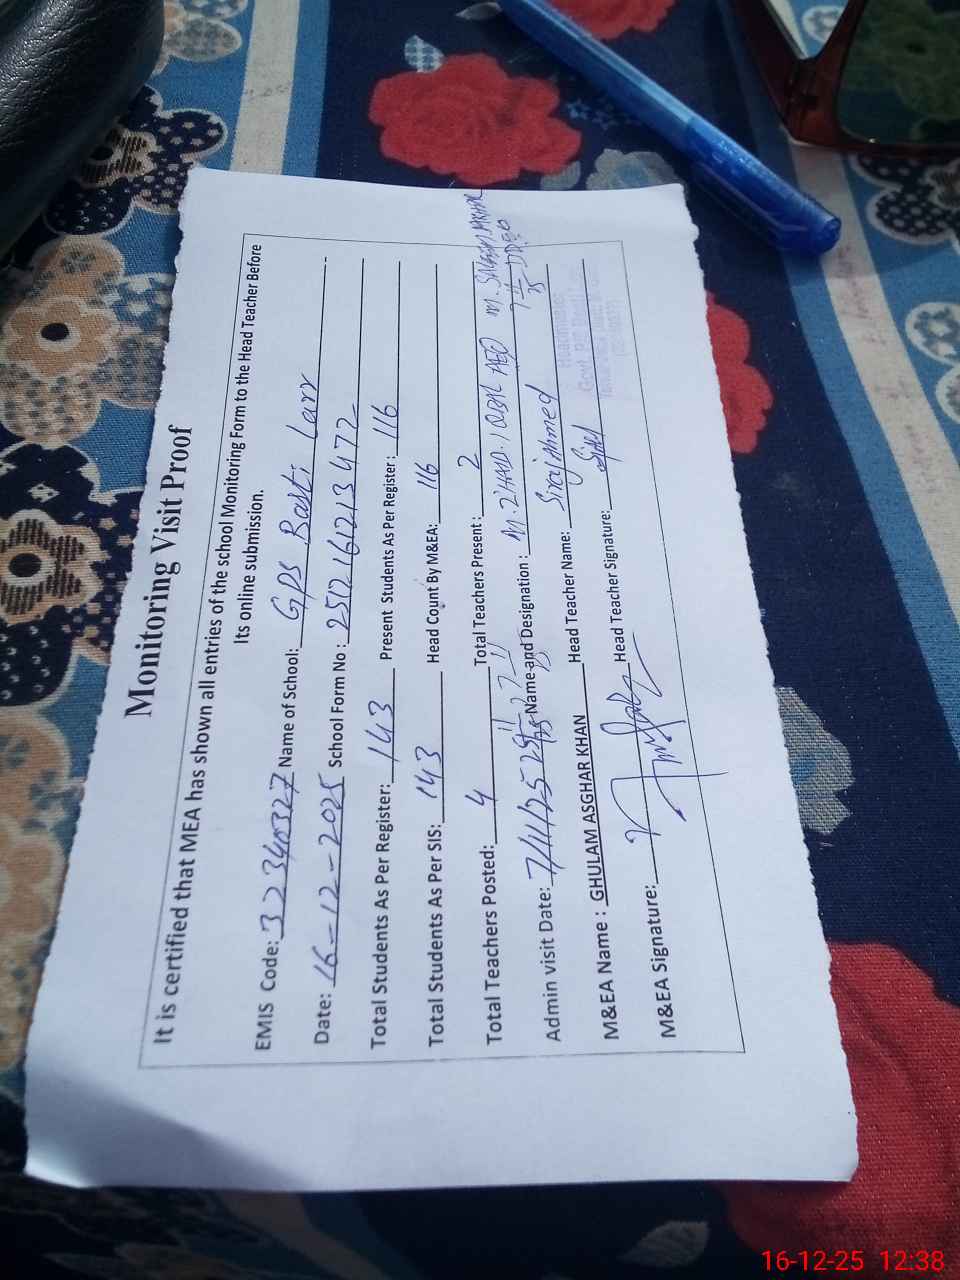 Monitoring Visit Proof
It is certified that MEA has shown all entries of the school Monitoring Form to the Head Teacher Before
Its online submission.
EMIS Code: 32340327 Name of School: GPS Basti Larr
Date: 16-12-2025 School Form No : 2512161213472
Total Students As Per Register: 143 Present Students As Per Register : 116
Total Students As Per SIS: 143 Head Count By M&EA: 116
Total Teachers Posted: 4 Total Teachers Present : 2
Admin visit Date: 7/11/25 Name and Designation : AEO
M&EA Name : GHULAM ASGHAR KHAN Head Teacher Name: Siraj Ahmed
M&EA Signature: Head Teacher Signature:
16-12-25 12:38